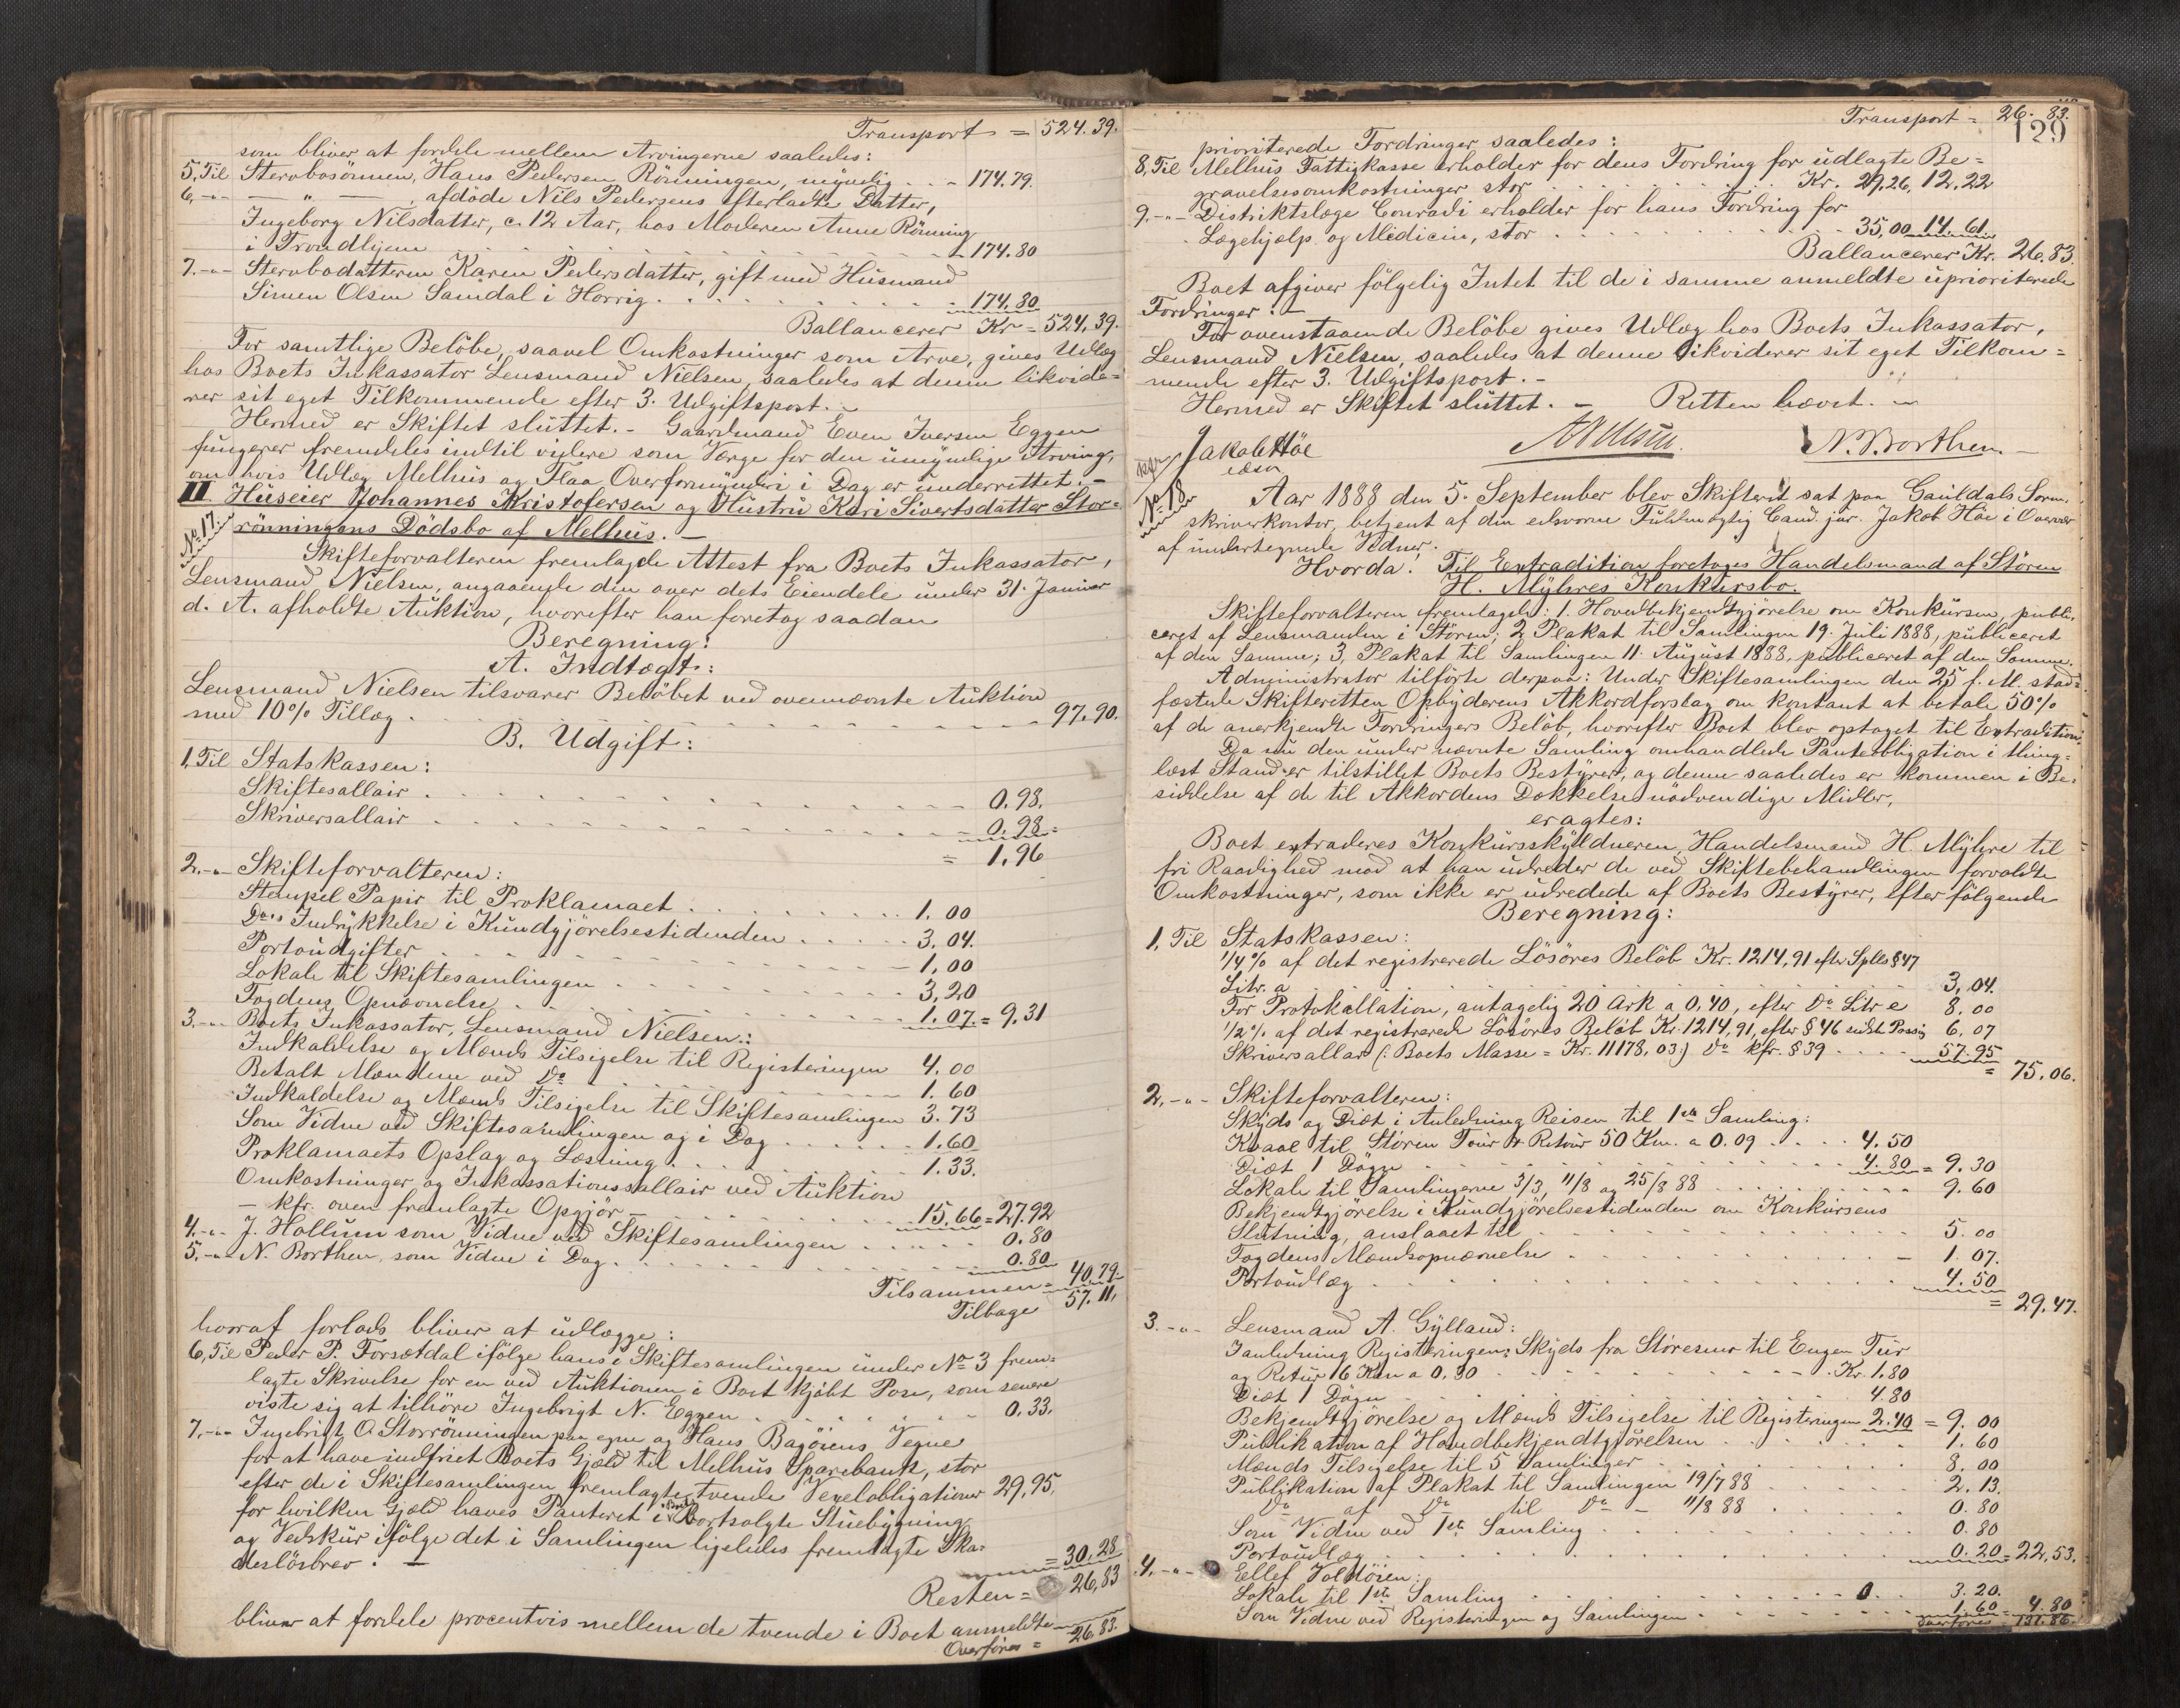 Transport = 524.39.
som bliver at fordele mellem Arvingerne saaledes:
5, Til Stervbosönnen, Hans Pedersen Rönningen, myndig . . - 174.79.
6, -"- — " — , afdöde Nils Pedersens efterladte Datter,
Ingeborg Nilsdatter, c. 12 Aar, hos Moderen Anne Rönning
i Trondhjem . . . 174.80
7. -"- Stervbodatteren Karen Pedersdatter, gift med Husmand
Simen Olsen Samdal i Horrig . . . 174.80
Ballancerer Kr = 524.39.
For samtlige Belöbe, saavel Omkostninger som Arve, gives Udlæg
hos Boets Inkassator Lensmand Nielsen, saaledes at denne likvide=
rer sit eget Tilkommende efter 3. Udgiftspost. -
Hermed er Skiftet sluttet. - Gaardmand Even Iversen Eggen
fungerer fremdeles indtil videre som Værge for den umyndige Arving,
om hvis Udlæg Melhus og Flaa Overformynderi i Dag er underrettet. -
II. Huseier Johannes Kristofersen og Hustru Kari Sivertsdatter Stor=
No 17. rönningens Dödsbo af Melhus. -
Skifteforvalteren fremlagde Attest fra Boets Inkassator,
Lensmand Nielsen, angaaende den over dets Eiendele under 31. Januar
d. A. afholdte Auktion, hvorefter han foretog saadan
Beregning:
A. Indtægt:
Lensmand Nielsen tilsvarer Belöbet ved ovennævnte Auktion
med 10% Tillæg . . . 97.90.
B. Udgift:
1, Til Statskassen:
Skiftesallair . . . 0.98.
Skriversallair . . . 0.98.
= 1,96
2. -"- Skifteforvalteren:
Stempel Papir til Proklamaet . . . 1.00
Do's Indrykkelse i Kundgjörelsestidenden . . . 3.04.
Portoudgifter . . . 1,00
Lokale til Skiftesamlingen . . . 3,20
Fogdens Opnævnelse . . . 1.07. = 9,31
3. -"- Boets Inkassator, Lensmand Nielsen:
Indkaldelse og Mænds Tilsigelse til Registeringen 4.00
Betalt Mændene ved Do . . . 1.60
Indkaldelse og Mænds Tilsigelse til Skiftesamlingen 3.73
Som Vidne ved Skiftesamlingen og i Dag . . . 1.60
Proklamaets Opslag og Læsning . . . 1.33.
Omkostninger og Inkassationssallair ved Auktion
- kfr. oven fremlagte Opgjör - . . . 15.66 = 27.92
4. -"- J. Hollum som Vidne ved Skiftesamlingen . . . 0.80
5. -"- N. Borthen, som Vidne i Dag . . . 0.80
Tilsammen = 40.79.
Tilbage 57.11,
hvoraf forlods bliver at udlægge:
6, Til Peder P. Forsetdal ifölge hans i Skiftesamlingen under No 3 frem=
lagte Skrivelse for en ved Auktionen i Boet kjöbt Pose, som senere
viste sig at tilhöre Ingebrigt N. Eggen . . . 0.33.
7, -"- Ingebrigt O. Storrönningen paa egne og Hans Bagöiens Vegne
for at have indfriet Boets Gjæld til Melhus Sparebank, stor
efter de i Skiftesamlingen fremlagte tvende Vexelobligationer 29,95,
for hvilken Gjæld haves Panteret i den bortsolgte Stuebygning
og Vedskur ifölge det i Samlingen ligeledes fremlagte Ska=
deslösbrev. - = 30.28
Resten = 26,83
bliver at fordele procentvis mellem de tvende i Boet anmeldte
Overföres = 26.83.
Transport = 26.83.
129
prioriterede Fordringer saaledes:
8, Til Melhus Fattigkasse erholder for dens Fordring for udlagte Be=
gravelsesomkostninger stor . . . Kr. 29.26. 12.22
9. -"- Distriktslæge Conradi erholder for hans Fordring for
Lægehjælp og Medicin, stor . . . 35,00 14.61.
Ballancerer Kr. 26.83.
Boet afgiver fölgelig Intet til de i samme anmeldte uprioriterede
Fordringer. -
For ovenstaaende Belöbe gives Udlæg hos Boets Inkassator,
Lensmand Nielsen, saaledes at denne likviderer sit eget Tilkom=
mende efter 3. Udgiftspost. -
Hermed er Skiftet sluttet. - Retten hævet. -
Jakob Höe ANielsen. N. Borthen. -
edsv
kfr
No 18. Aar 1888 den 5. September blev Skifteret sat paa Guldals Soren=
skriverkontor, betjent af den edsvorne Fuldmægtig Cand. jur. Jakob Höe i Overvær
af undertegnede Vidner.
Hvorda: Til Extradition foretoges Handelsmand af Stören
H. Myhres Konkursbo.
Skifteforvalteren fremlagde: 1. Hovedbekjendtgjörelse om Konkursen, publi=
ceret af Lensmanden i Stören; 2, Plakat til Samlingen 19. Juli 1888, publiceret
af den Samme; 3, Plakat til Samlingen 11. August 1888, publiceret af den Samme.
Administrator tilförte derpaa: Under Skiftesamlingen den 25 f. M. stad=
fæstede Skifteretten Opbyderens Akkordforslag om kontant at betale 50%
af de anerkjendte Fordringers Belöb, hvorefter Boet blev optaget til Extradition.
Da nu den under nævnte Samling omhandlede Panteobligation i thing=
læst Stand er tilstillet Boets Bestyrer, og denne saaledes er kommen i Be=
siddelse af de til Akkordens Dækkelse nödvendige Midler,
eragtes:
Boet extraderes Konkursskyldneren, Handelsmand H. Myhre til
fri Raadighed mod at han udreder de ved Skiftebehandlingen forvoldte
Omkostninger, som ikke er udredede af Boets Bestyrer, efter fölgende
Beregning:
1, Til Statskassen:
1/4% af det registrerede Lösöres Belöb Kr. 1214,91 efter Splls § 47
Litr. a . . . 3,04.
For Protokollation, antagelig 20 Ark a 0,40, efter Do Litr e 8.00
1/2% af det registrerede Lösöres Belöb Kr. 1214,91, efter § 46 sidste Passus 6,07
Skriversallar (: Boets Masse = Kr. 11178,03:) Do kfr. § 39 . . . 57.95
= 75,06.
2, -"- Skifteforvalteren:
Skyds og Diæt i Anledning Reisen til 1ste Samling:
Kvaal til Stören Tour & Retour 50 Km. a 0.09 . . . 4.50
Diæt 1 Dögn . . . 4.80 = 9.30
Lokale til Samlingerne 3/3, 11/8 og 25/8 88 . . . 9.60
Bekjendtgjörelse i Kundgjörelsestidenden om Konkursens
Slutning, anslaaet til . . . 5.00
Fogdens Mændsopnævnelse . . . 1.07.
Portoudlæg . . . 4.50
= 29.47.
3. -"- Lensmand A. Gylland:
I anledning Registeringen: Skyds fra Störesmo til Engen Tur
og Retur 16 Km a 0,30 . . . Kr. 1.80
Diæt 1 Dögn . . . 4.80
Bekjendtgjörelse og Mænds Tilsigelse til Registeringen 2.40 = 9.00
Publikation af Hovedbekjendtgjörelsen . . . 1.60
Mænds Tilsigelse til 5 Samlinger . . . 8.00
Publikation af Plakat til Samlingen 19/7 88 . . . 2.13.
Do af Do til Do - 11/8 88 . . . 0.80
Som Vidne ved 1ste Samling . . . 0.80
Portoudlæg . . . 0.20 = 22,53.
4. -"- Ellef Foldöien:
Lokale til 1ste Samling . . . 3.20.
Som Vidne ved Registeringen og Samlingen . . . 1.60 = 4.80
Overföres = 131.86.